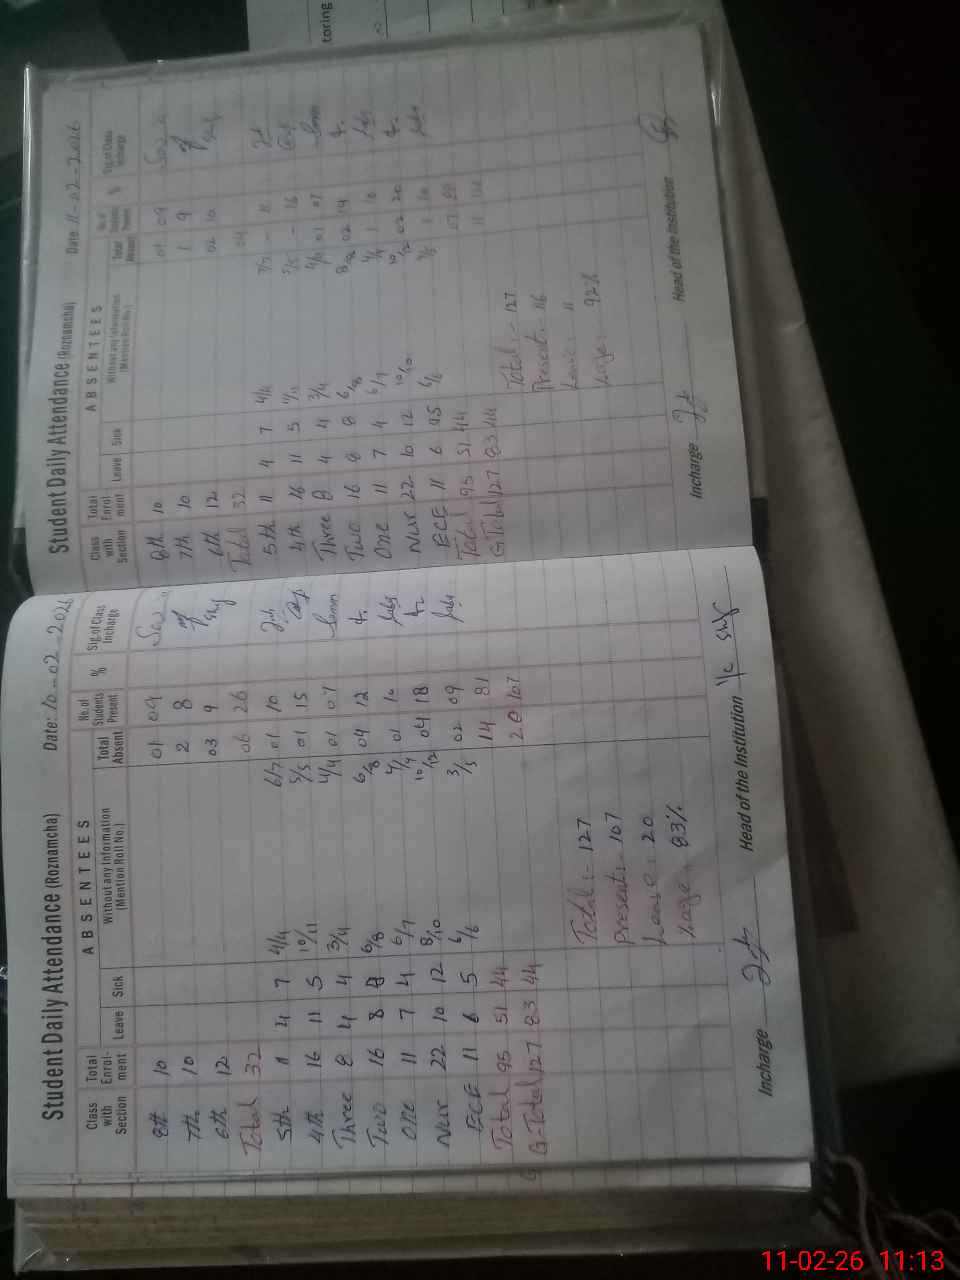 toring
Student Daily Attendance (Roznamcha)
Date: 10-02-2026
Class with Section Total Enrol-ment ABSENTEES Leave Sick Without any Information (Mention Roll No.) Total Absent No. of Students Present % Sig. of Class Incharge
8th 10 01 09
7th 10 2 8
6th 12 03 9
Total 32 06 26
5th 11 4 7 4/4 6/7 01 10
4th 16 11 5 10/11 5/5 01 15
Three 8 4 4 3/4 4/4 01 07
Two 16 8 8 6/8 6/8 04 12
One 11 7 4 6/7 4/4 01 10
Nur 22 10 12 8/10 10/12 04 18
ECE 11 6 5 6/6 3/5 02 09
Total 95 51 44 14 81
G-Total 127 83 44 20 107
Total:- 127
Present:- 107
Leave:- 20
%age:- 83%
Incharge
Head of the Institution
Student Daily Attendance (Roznamcha)
Date 11-02-2026
Class with Section Total Enrol-ment ABSENTEES Leave Sick Without any Information (Mention Roll No.) Total Absent No. of Students Present % Sig. of Class Incharge
8th 10 01 09
7th 10 1 9
6th 12 02 10
Total 32 04
5th 11 4 7 4/4 7/7 - 11
4th 16 11 5 11/11 5/5 - 16
Three 8 4 4 3/4 4/4 01 07
Two 16 8 8 6/8 8/8 02 14
One 11 7 4 6/7 4/4 1 10
Nur 22 10 12 10/10 10/12 02 20
ECE 11 6 6/6 1 10
Total 95 51 44 07 88
G-Total 127 83 44 11
Total:- 127
Present:- 116
Leave:- 11
%age:- 92%
Incharge
Head of the Institution
11-02-26 11:13